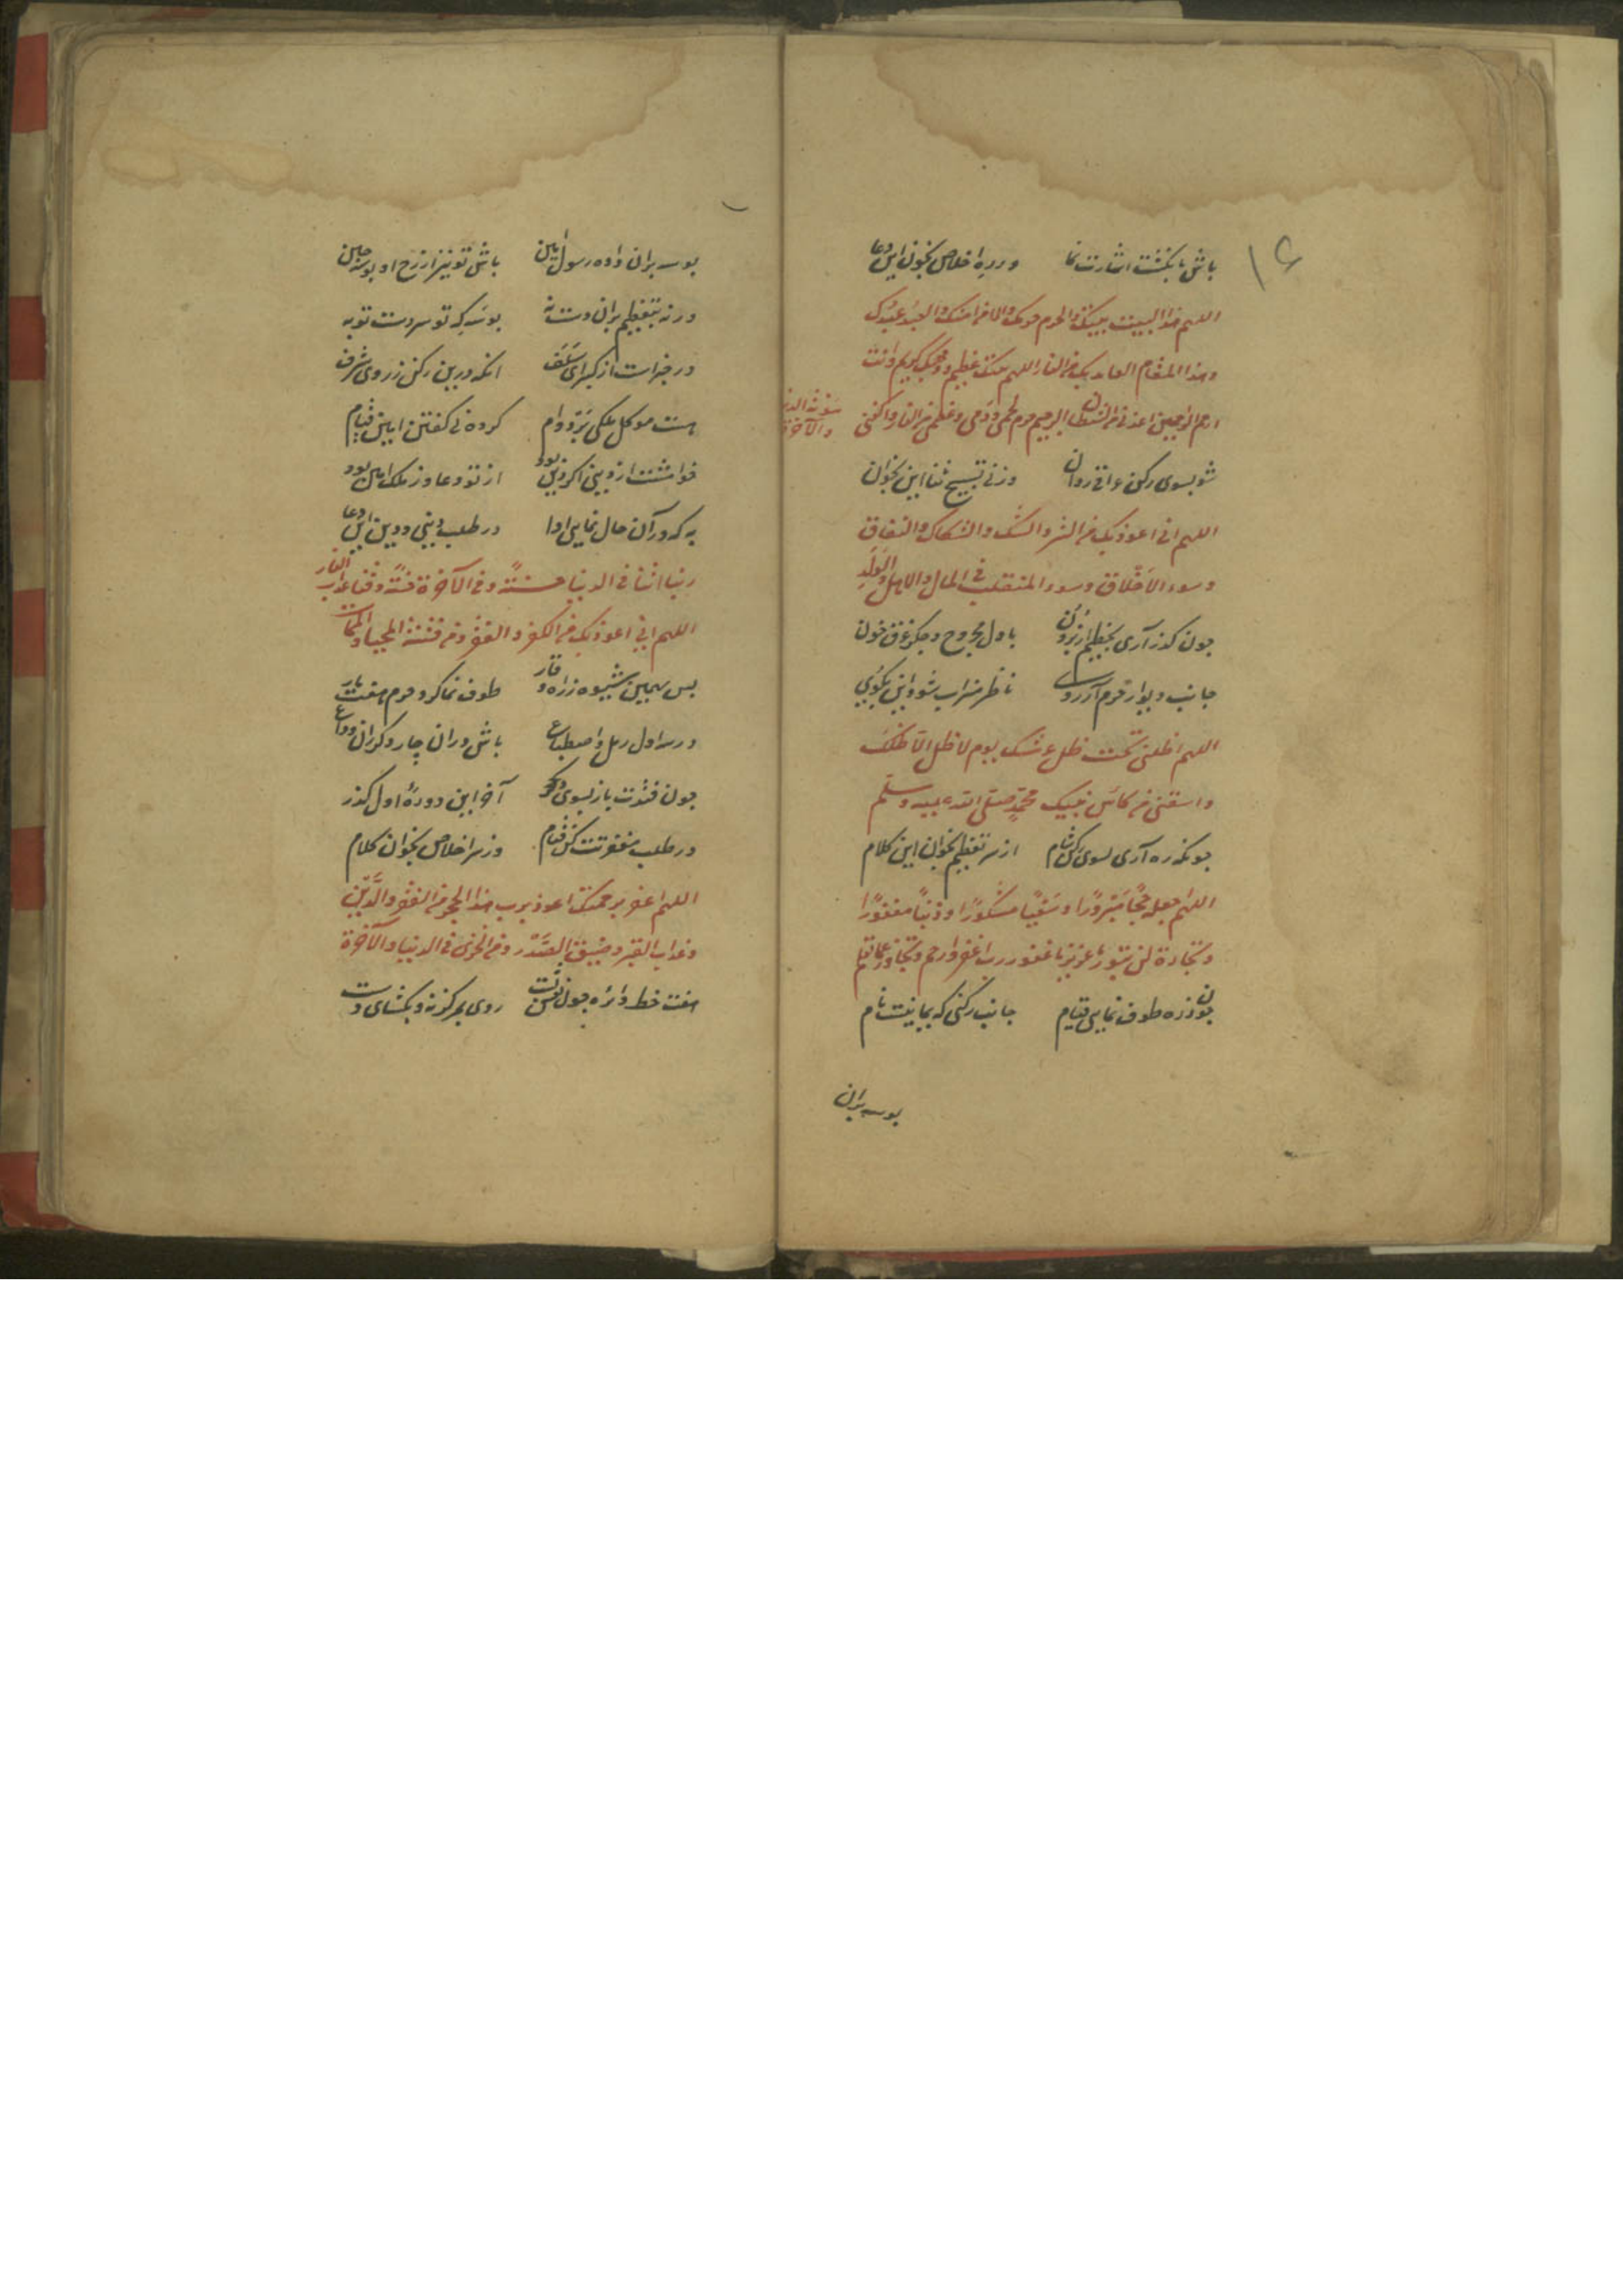 ۱۶
باش بانگشت اشارت نما ودر ره اخلاص بخوان این دعا
اللهم هذا البیت بیتک والحرم حرمک والامن امنک والعبد عبدک
وهذا المقام العائذ بک من النار اللهم بیتک عظیم ووجهک کریم وانت
ارحم الراحمین اعذنی من الشیطان الرجیم حرم لحمی ودمی وعظمی من النار واکفنی
مئونة الدنیا والآخرة
شو بسوی رکن عراقی روان وز پی تسبیح ثنا این بخوان
اللهم انی اعوذ بک من الشر والشک والشکاک والنفاق
وسوء الاخلاق وسوء المنقلب فی المال والاهل والولد
چون گذر آری بحطیم از برون با دل مجروح و جگر غرق خون
جانب دیوار حرم آر روی ناظر میزاب شو و این بگوی
اللهم اظلنی تحت ظل عرشک یوم لا ظل الا ظلک
واسقنی من کاس نبیک محمد صلی الله علیه وسلم
چونکه ره آری بسوی رکن شام از سر تعظیم بخوان این کلام
اللهم اجعله حجا مبرورا وسعیا مشکورا وذنبا مغفورا
وتجارة لن تبور یا عزیز یا غفور رب اغفر وارحم وتجاوز عما تعلم
چون ز ره طوف نمایی قیام جانب رکنی که یمانیست نام
بوسه بران
بوسه بران داده رسول امین باش تو نیز از رخ او بوسه چین
ورنه بتعظیم بران دست نه بوسه که تو بر دست تو به
در خبر است از کبرای سلف آنکه درین رکن ز روی شرف
هست موکل ملکی بر دوام کرده پی گفتن آمین قیام
خواهشت از دینی اگر دین بود از تو دعا وز ملک آمین بود
به که در آن حال نمایی ادا در طلب دینی و دین این دعا
ربنا اتنا فی الدنیا حسنة وفی الآخرة حسنة وقنا عذاب النار
اللهم انی اعوذ بک من الکفر والفقر ومن فتنة المحیا والممات
پس بهمین شیوه ز راه وقار طوف نما گرد حرم هفت بار
در سه اول رمل و اضطباع باش در آن چار دگر ان وداع
چون فتدت باز بسوی حجر آخر این دوره اول گذر
در طلب مغفرتت کن قیام وز سر اخلاص بخوان کلام
اللهم اغفر برحمتک اعوذ برب هذا الحجر من الفقر والدین
وعذاب القبر وضیق الصدر ومن الخزی فی الدنیا والآخرة
هفت خط دائره چون نقش بست روی بمرکز نه و بگشای دست